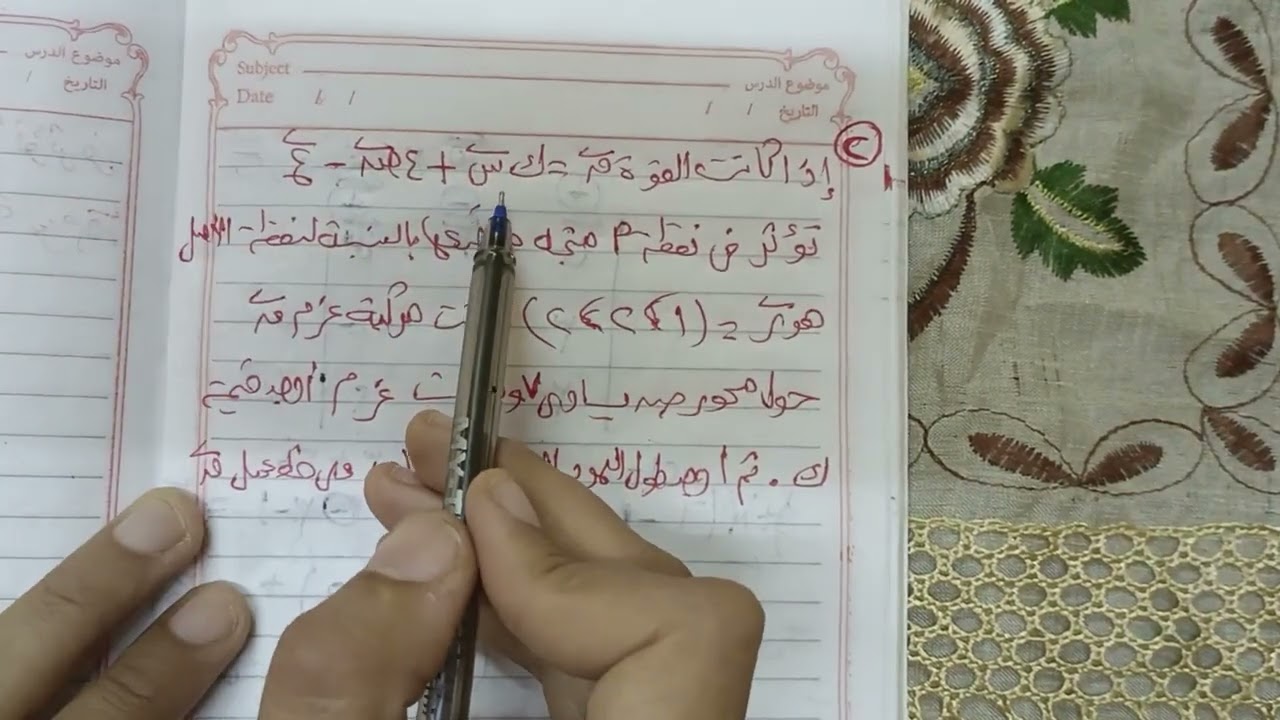 موضوع الدرس
التاريخ /
Subject موضوع الدرس
Date / / / / التاريخ
٢ إذا كانت القوة ق = ك س + ٤ ص - ع
تؤثر في نقطة م متجه بالنسبة لنقطة الأصل
هو ر = (١، ٢، ٢) مركبة عزم ق
حول محور ص يساوى ٧ عزم أوجد قيمة
ك . ثم أوجد طول العمود خط عمل ق